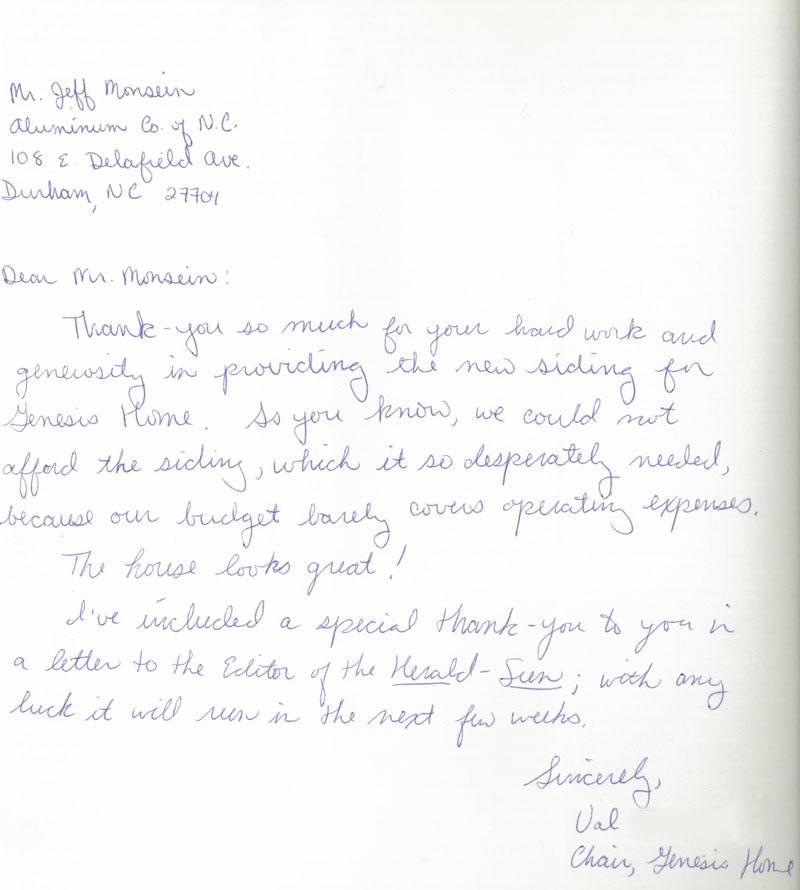 Mr. Jeff Monsein
Aluminum Co. of N.C.
108 E. Delafield Ave.
Durham, NC 27704
Dear Mr. Monsein:
Thank-you so much for your hard work and
generosity in providing the new siding for
Genesis Home. As you know, we could not
afford the siding, which it so desperately needed,
because our budget barely covers operating expenses.
The house looks great!
I've included a special thank-you to you in
a letter to the Editor of the Herald-Sun; with any
luck it will run in the next few weeks.
Sincerely,
Val
Chair, Genesis Home